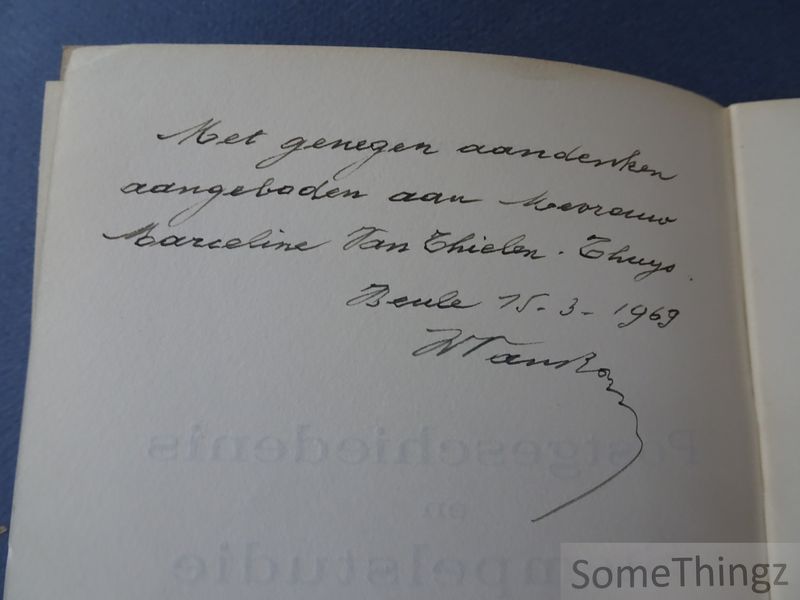 Met genegen aandenken
aangeboden aan Mevrouw
Marceline Van Thielen - Thuys.
15-3-1969
Postgeschiedenis
en
mpelstudie
SomeThingz